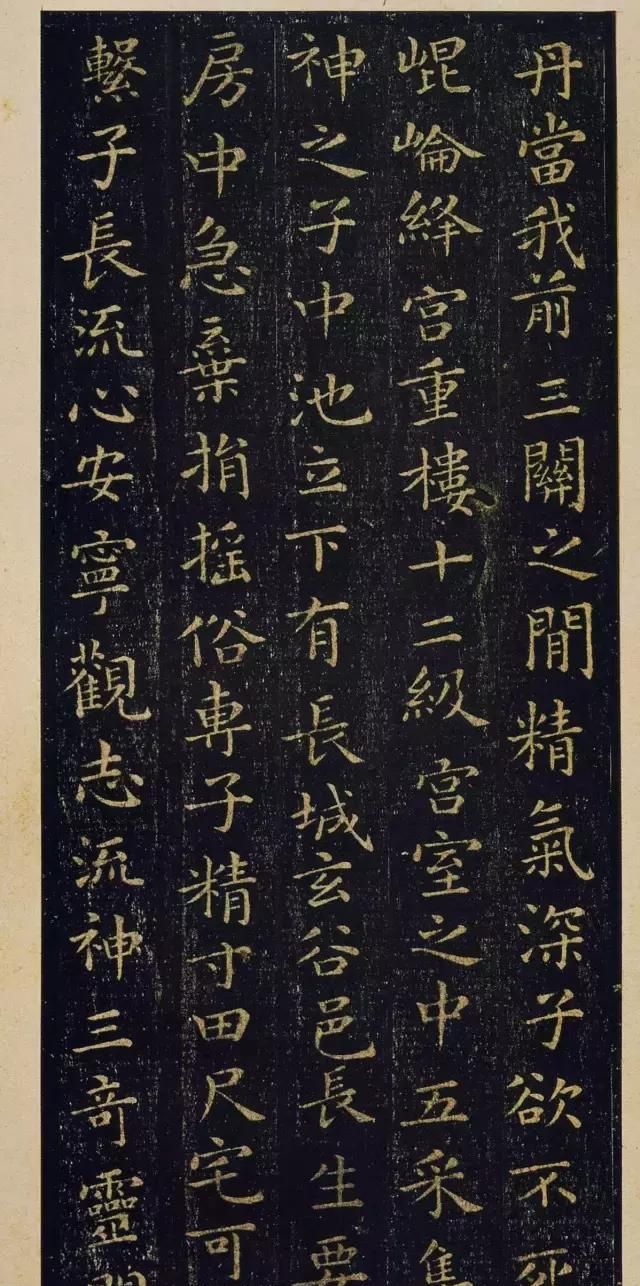 丹當我前三關之閒精氣深子欲不死
崐崘絳宮重樓十二級宮室之中五采集
神之子中池立下有長城玄谷邑長生要
房中急棄捐搖俗專子精寸田尺宅可
繫子長流心安寧觀志流神三奇靈